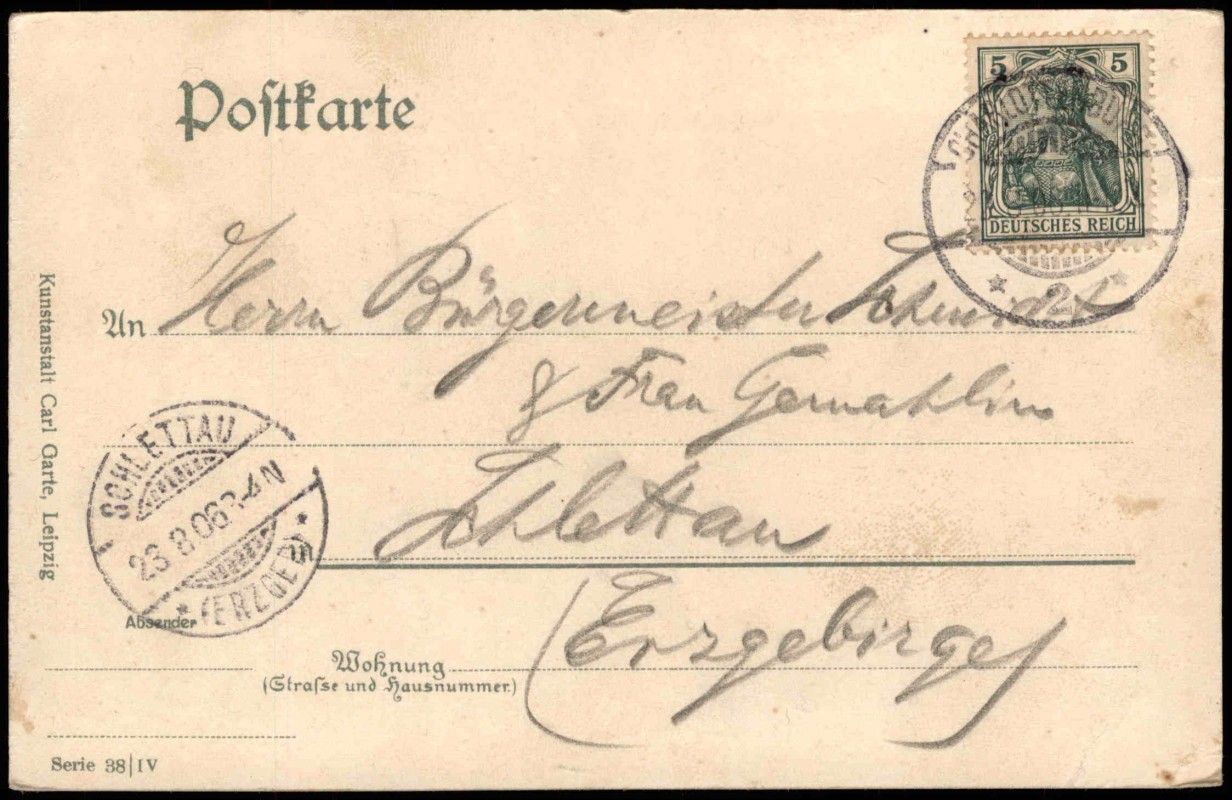 Postkarte
5 5
DEUTSCHES REICH
* 2 *
An Herrn Bürgermeister Schmidt
& Frau Gemahlin
in Schlettau
(Erzgebirge)
SCHLETTAU
23.8.06
* (ERZGEB.) *
Absender
Wohnung
(Straſse und Hausnummer.)
Kunstanstalt Carl Garte, Leipzig
Serie 38|IV